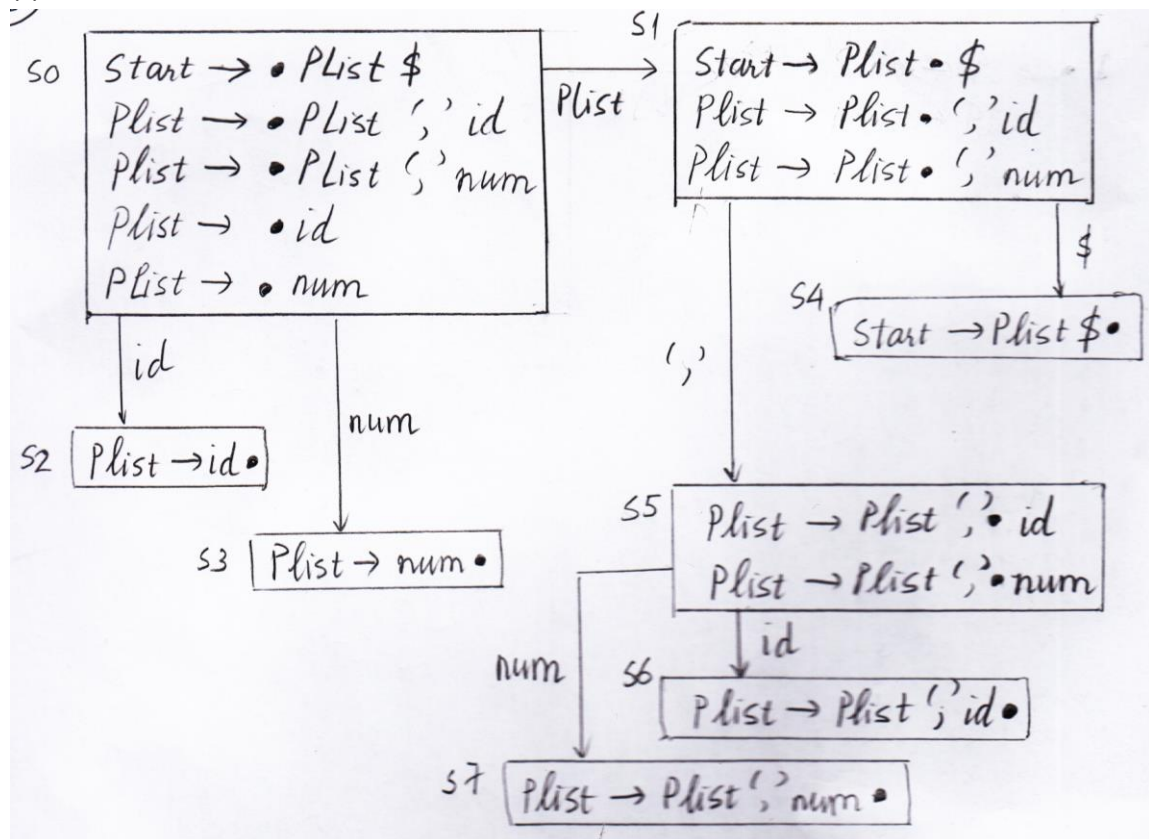 S0
Start → • PList $
Plist → • PList ',' id
Plist → • PList ',' num
Plist → • id
Plist → • num
Plist
S1
Start → Plist • $
Plist → Plist • ',' id
Plist → Plist • ',' num
id
num
','
$
S4
Start → Plist $ •
S2
Plist → id •
S3
Plist → num •
S5
Plist → Plist ',' • id
Plist → Plist ',' • num
num
id
S6
Plist → Plist ',' id •
S7
Plist → Plist ',' num •